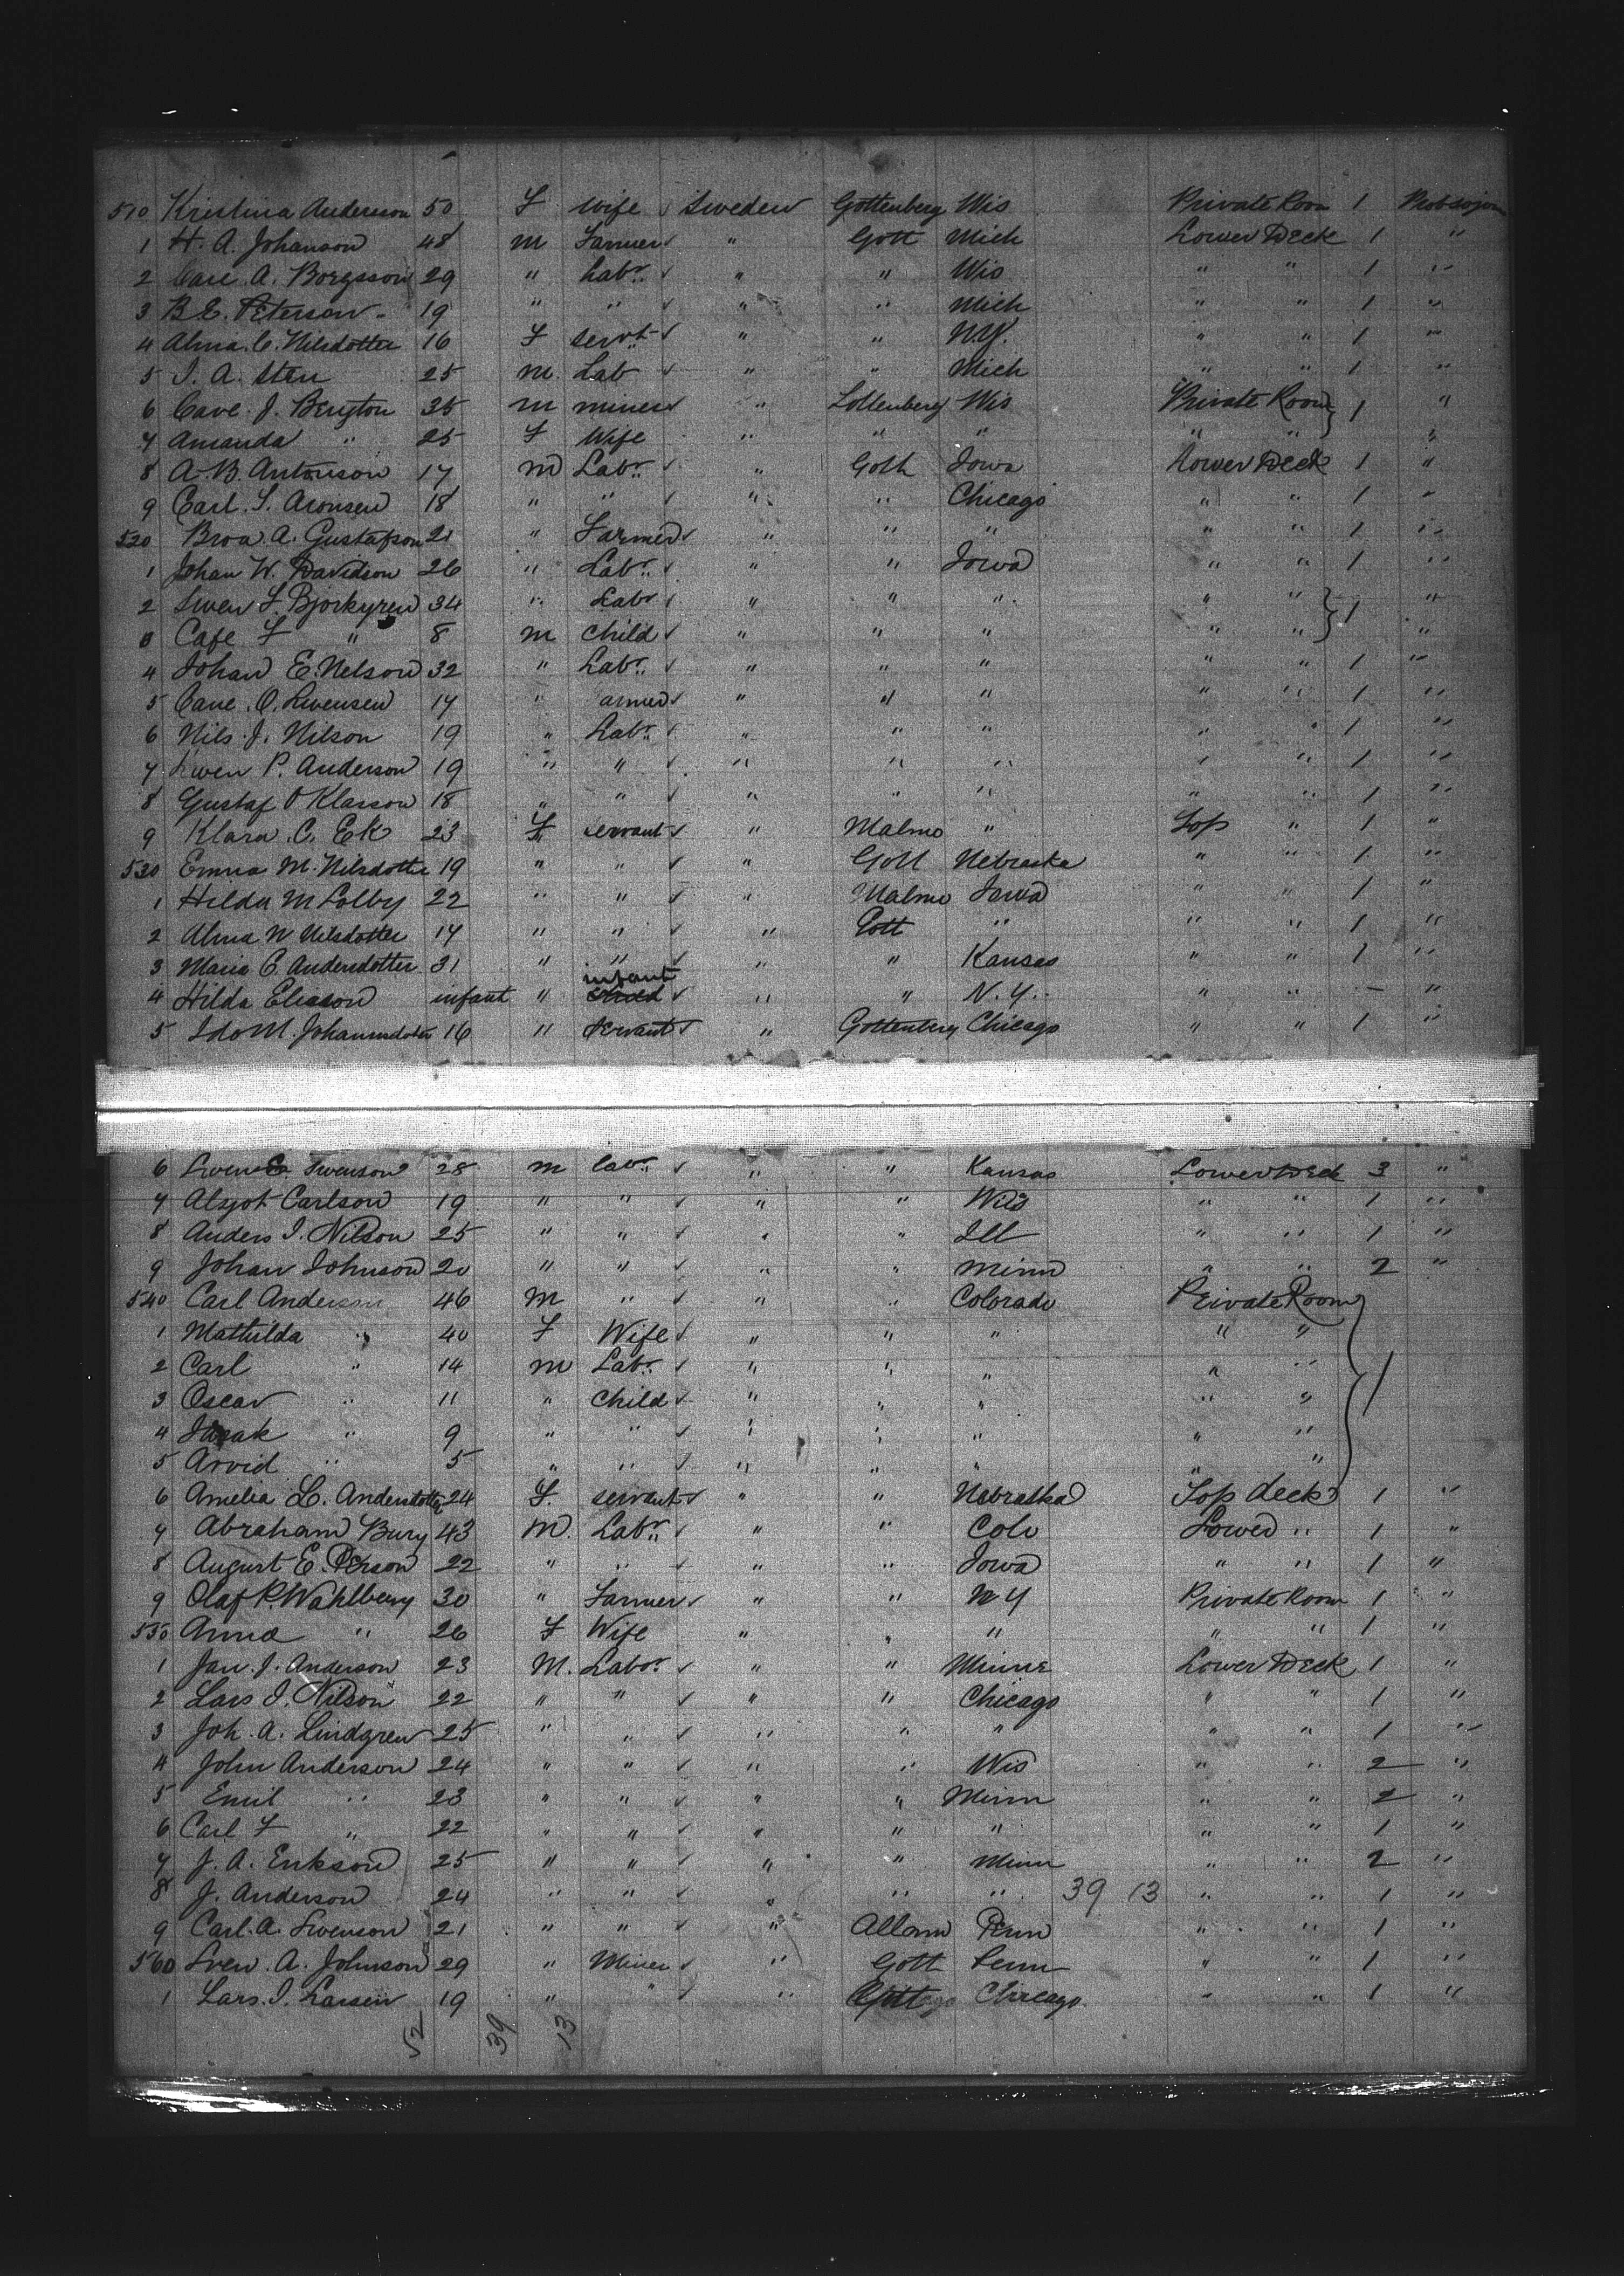 510 Kristina Anderson 50 F Wife ✓ Sweden Gottenberg Wis Private Room 1 Not sojorn
1 H. A. Johanson 48 m Farmer ✓ " Gott Mich Lower Deck 1 "
2 A. Borgsson 29 " Labr. ✓ " " Wis " " 1 "
3 B. E. Peterson 19 " " ✓ " " Mich " " 1 "
4 Alma. C. Nilsdotter 16 F servt ✓ " " N.Y. " " 1 "
5 J. A. Sten 25 m. Lab ✓ " " Mich " " 1 "
6 J. Bengton 35 m miner ✓ " Wis Private Room } 1 "
7 Amanda " 25 F Wife " " " " " "
8 A. B. Antonson 17 m Labr. ✓ " Goth Iowa Lower Deck 1 "
9 Carl. S. Aronsen 18 " " ✓ " " Chicago " " 1 "
520 A. Gustafson 21 " Farmer ✓ " " " " " 1 "
1 Johan W. Davidson 26 " Labr. ✓ " " Iowa " " 1 "
2 Swen F. 34 " Labr ✓ " " " " " } 1 "
3 F " 8 m child ✓ " " " " " "
4 Johan E. Nelson 32 " Labr. ✓ " " " " " 1 "
5 O. Swensen 17 " ✓ " " " " " 1 "
6 Nils. J. Nilson 19 " Labr. ✓ " " " " " 1 "
7 Swen P. Anderson 19 " " ✓ " " " " " 1 "
8 Gustaf O Klarson 18 " " ✓ " " " " " 1 "
9 Klara. C. Ek 23 F servant ✓ " Malmo " Top " 1 "
530 Emma M. Nilsdotter 19 " " ✓ " Gott Nebraska " " 1 "
1 Hilda M Lolby 22 " " ✓ " Malmo Iowa " " 1 "
2 Alma W Nilsdotter 17 " " ✓ " Gott " " " 1 "
3 Maria C. Andersdotter 31 " " ✓ " " Kansas " " 1 "
infant
4 Hilda Eliason infant " child ✓ " " N. Y. " " – "
5 M. 16 " Servant ✓ " Gottenberg Chicago " " 1 "
6 Swenson 28 m Labr. ✓ " " Kansas Lower Deck 3 "
7 Carlson 19 " " ✓ " " Wis " " 1 "
8 Anders I. Nilson 25 " " ✓ " " Ill " " 1 "
9 Johan Johnson 20 " " ✓ " " Minn " " 2 "
540 Carl Anderson 46 m " ✓ " " Colorado Private Room }
1 Mathilda " 40 F Wife ✓ " " " " "
2 Carl " 14 m Labr. ✓ " " " " " 1
3 Oscar " 11 " Child ✓ " " " " "
4 " 9 " " ✓ " " " " "
5 Arvid " 5 " " ✓ " " " " "
6 Amelia L. Andersdotter 24 F. servant ✓ " " Top deck 1 "
7 Abraham Bury 43 M. Labr. ✓ " " Colo Lower " 1 "
8 August E. Person 22 " " ✓ " " Iowa " " 1 "
9 Olaf P. Wahlberg 30 " Farmer ✓ " " N Y Private Room 1 "
550 Anna " 26 F Wife " " " " " 1 "
1 Jan. J. Anderson 23 M. Labor ✓ " " Minne Lower Deck 1 "
2 Lars I. Nilson 22 " " ✓ " " Chicago " " 1 "
3 Joh. A. Lindgren 25 " " ✓ " " " " " 1 "
4 John Anderson 24 " " ✓ " " Wis " " 2 "
5 Emil " 23 " " ✓ " " Minn " " 2 "
6 Carl F " 22 " " ✓ " " " " " 1 "
7 J. A. Erikson 25 " " ✓ " " Minn " " 2 "
8 J. Anderson 24 " " ✓ " " " 39 13 " " 1 "
9 Carl. A. Swenson 21 " " ✓ " Penn " " 1 "
560 Sven. A. Johnson 29 " Miner ✓ " Gott Penn " " 1 "
1 Lars. I. Larsen 19 " " ✓ " Gott Chicago " " 1 "
52 39 13